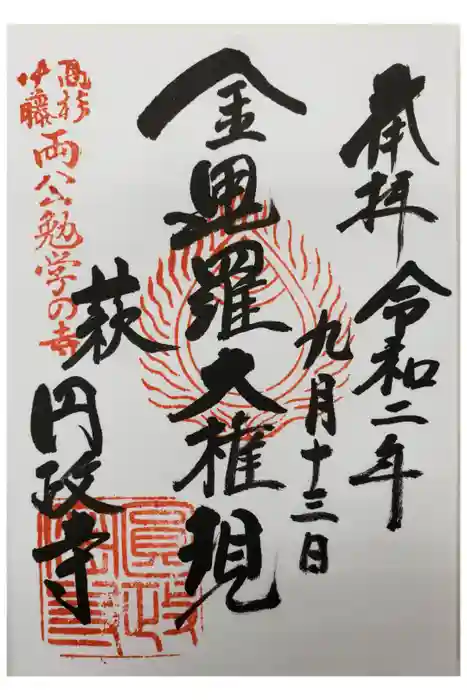 奉拝 令和二年
九月十三日
金毘羅大権現
萩 円政寺
高杉
伊藤
両公勉学の寺
圓政寺